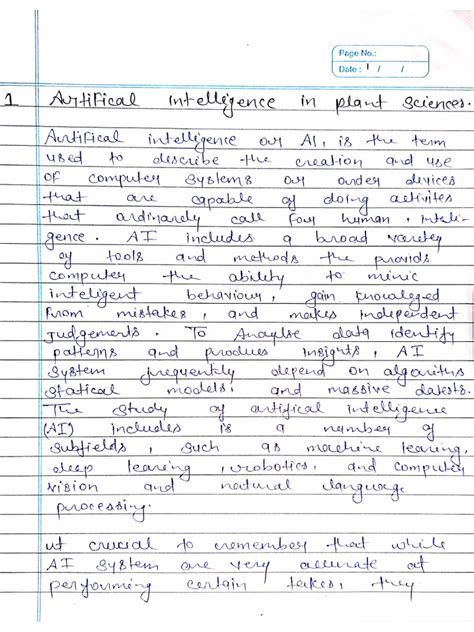 Page No.:
Date: 1 / /
1 Artifical intelligence in plant sciences.
Artifical intelligence or AI, is the term
used to describe the creation and use
of computer systems or order devices
that are capable of doing activites
that ordinarely call for human, inteli-
gence. AI includes a broad variety
of tools and methods the provids
computer the ability to mimic
inteligent behaviour, gain knowleged
from mistakes, and makes independent
judgements. To Anaylse data identify
patterns and produes insights, AI
system frequently depend on algoriths
statical models, and massive datests.
The study of artifical intelligence
(AI) includes is a number of
subfields, such as machine learing,
deep learing, robotics, and computer
vision and natural language
processing.
ut crucial to remember that while
AI system are very accurate at
performing certain takes, they